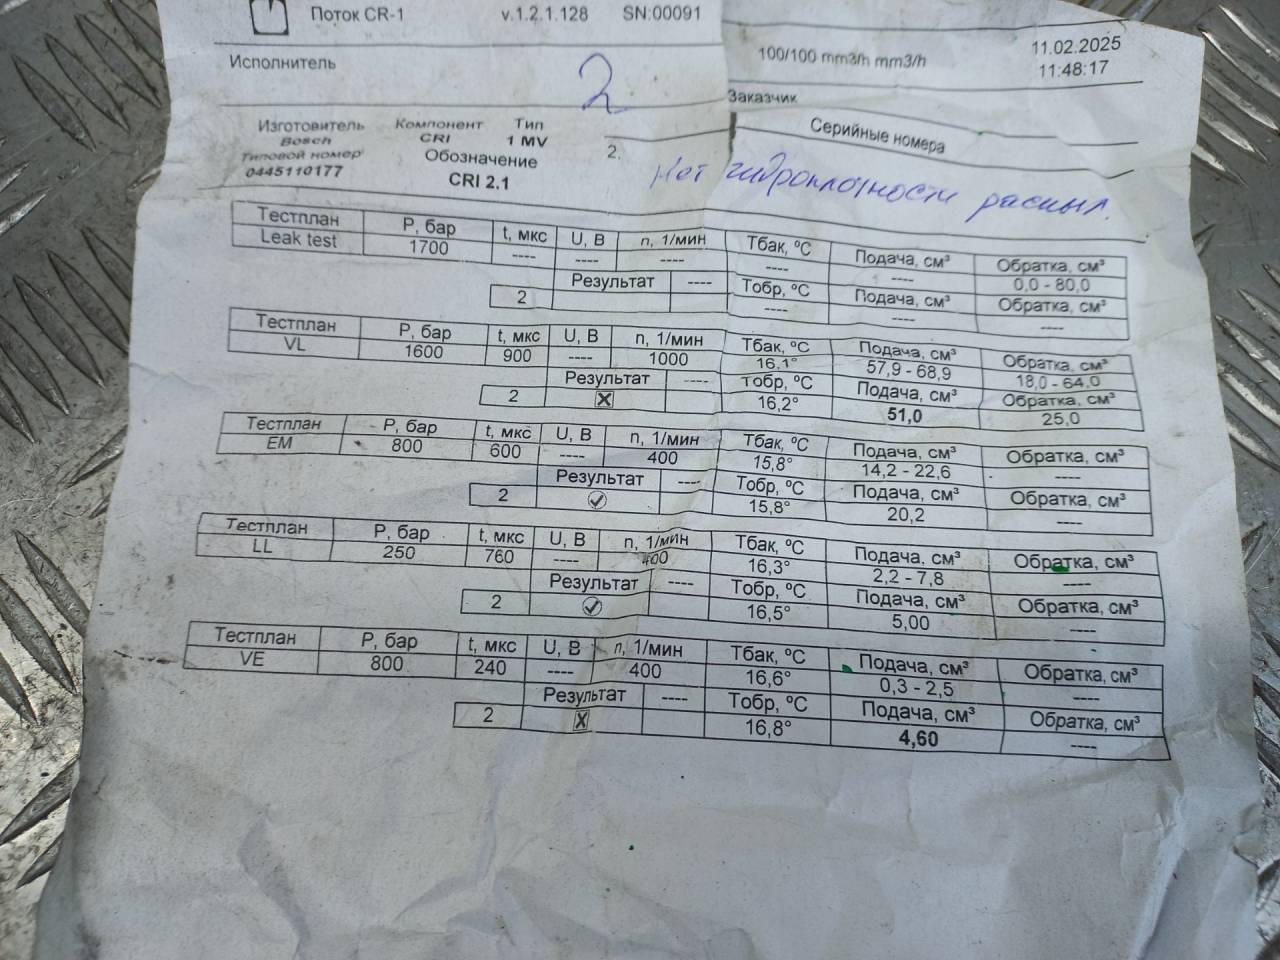 Поток CR-1 v.1.2.1.128 SN:00091
100/100 mm3/h mm3/h 11.02.2025
11:48:17
Исполнитель 2 Заказчик
Изготовитель Компонент Тип Серийные номера
Bosch CRI 1 MV 2.
Типовой номер Обозначение
0445110177 CRI 2.1 Нет гидроплотности распыл.
Тестплан P, бар t, мкс U, В n, 1/мин Tбак, ºC Подача, см³ Обратка, см³
Leak test 1700 ---- ---- ---- ---- ---- 0,0 - 80,0
Результат ---- Tобр, ºC Подача, см³ Обратка, см³
2 ---- ---- ----
Тестплан P, бар t, мкс U, В n, 1/мин Tбак, ºC Подача, см³ Обратка, см³
VL 1600 900 ---- 1000 16,1° 57,9 - 68,9 18,0 - 64,0
Результат ---- Tобр, ºC Подача, см³ Обратка, см³
2 16,2° 51,0 25,0
Тестплан P, бар t, мкс U, В n, 1/мин Tбак, ºC Подача, см³ Обратка, см³
EM 800 600 ---- 400 15,8° 14,2 - 22,6 ----
Результат ---- Tобр, ºC Подача, см³ Обратка, см³
2 15,8° 20,2 ----
Тестплан P, бар t, мкс U, В n, 1/мин Tбак, ºC Подача, см³ Обратка, см³
LL 250 760 ---- 400 16,3° 2,2 - 7,8 ----
Результат ---- Tобр, ºC Подача, см³ Обратка, см³
2 16,5° 5,00 ----
Тестплан P, бар t, мкс U, В n, 1/мин Tбак, ºC Подача, см³ Обратка, см³
VE 800 240 ---- 400 16,6° 0,3 - 2,5 ----
Результат ---- Tобр, ºC Подача, см³ Обратка, см³
2 16,8° 4,60 ----